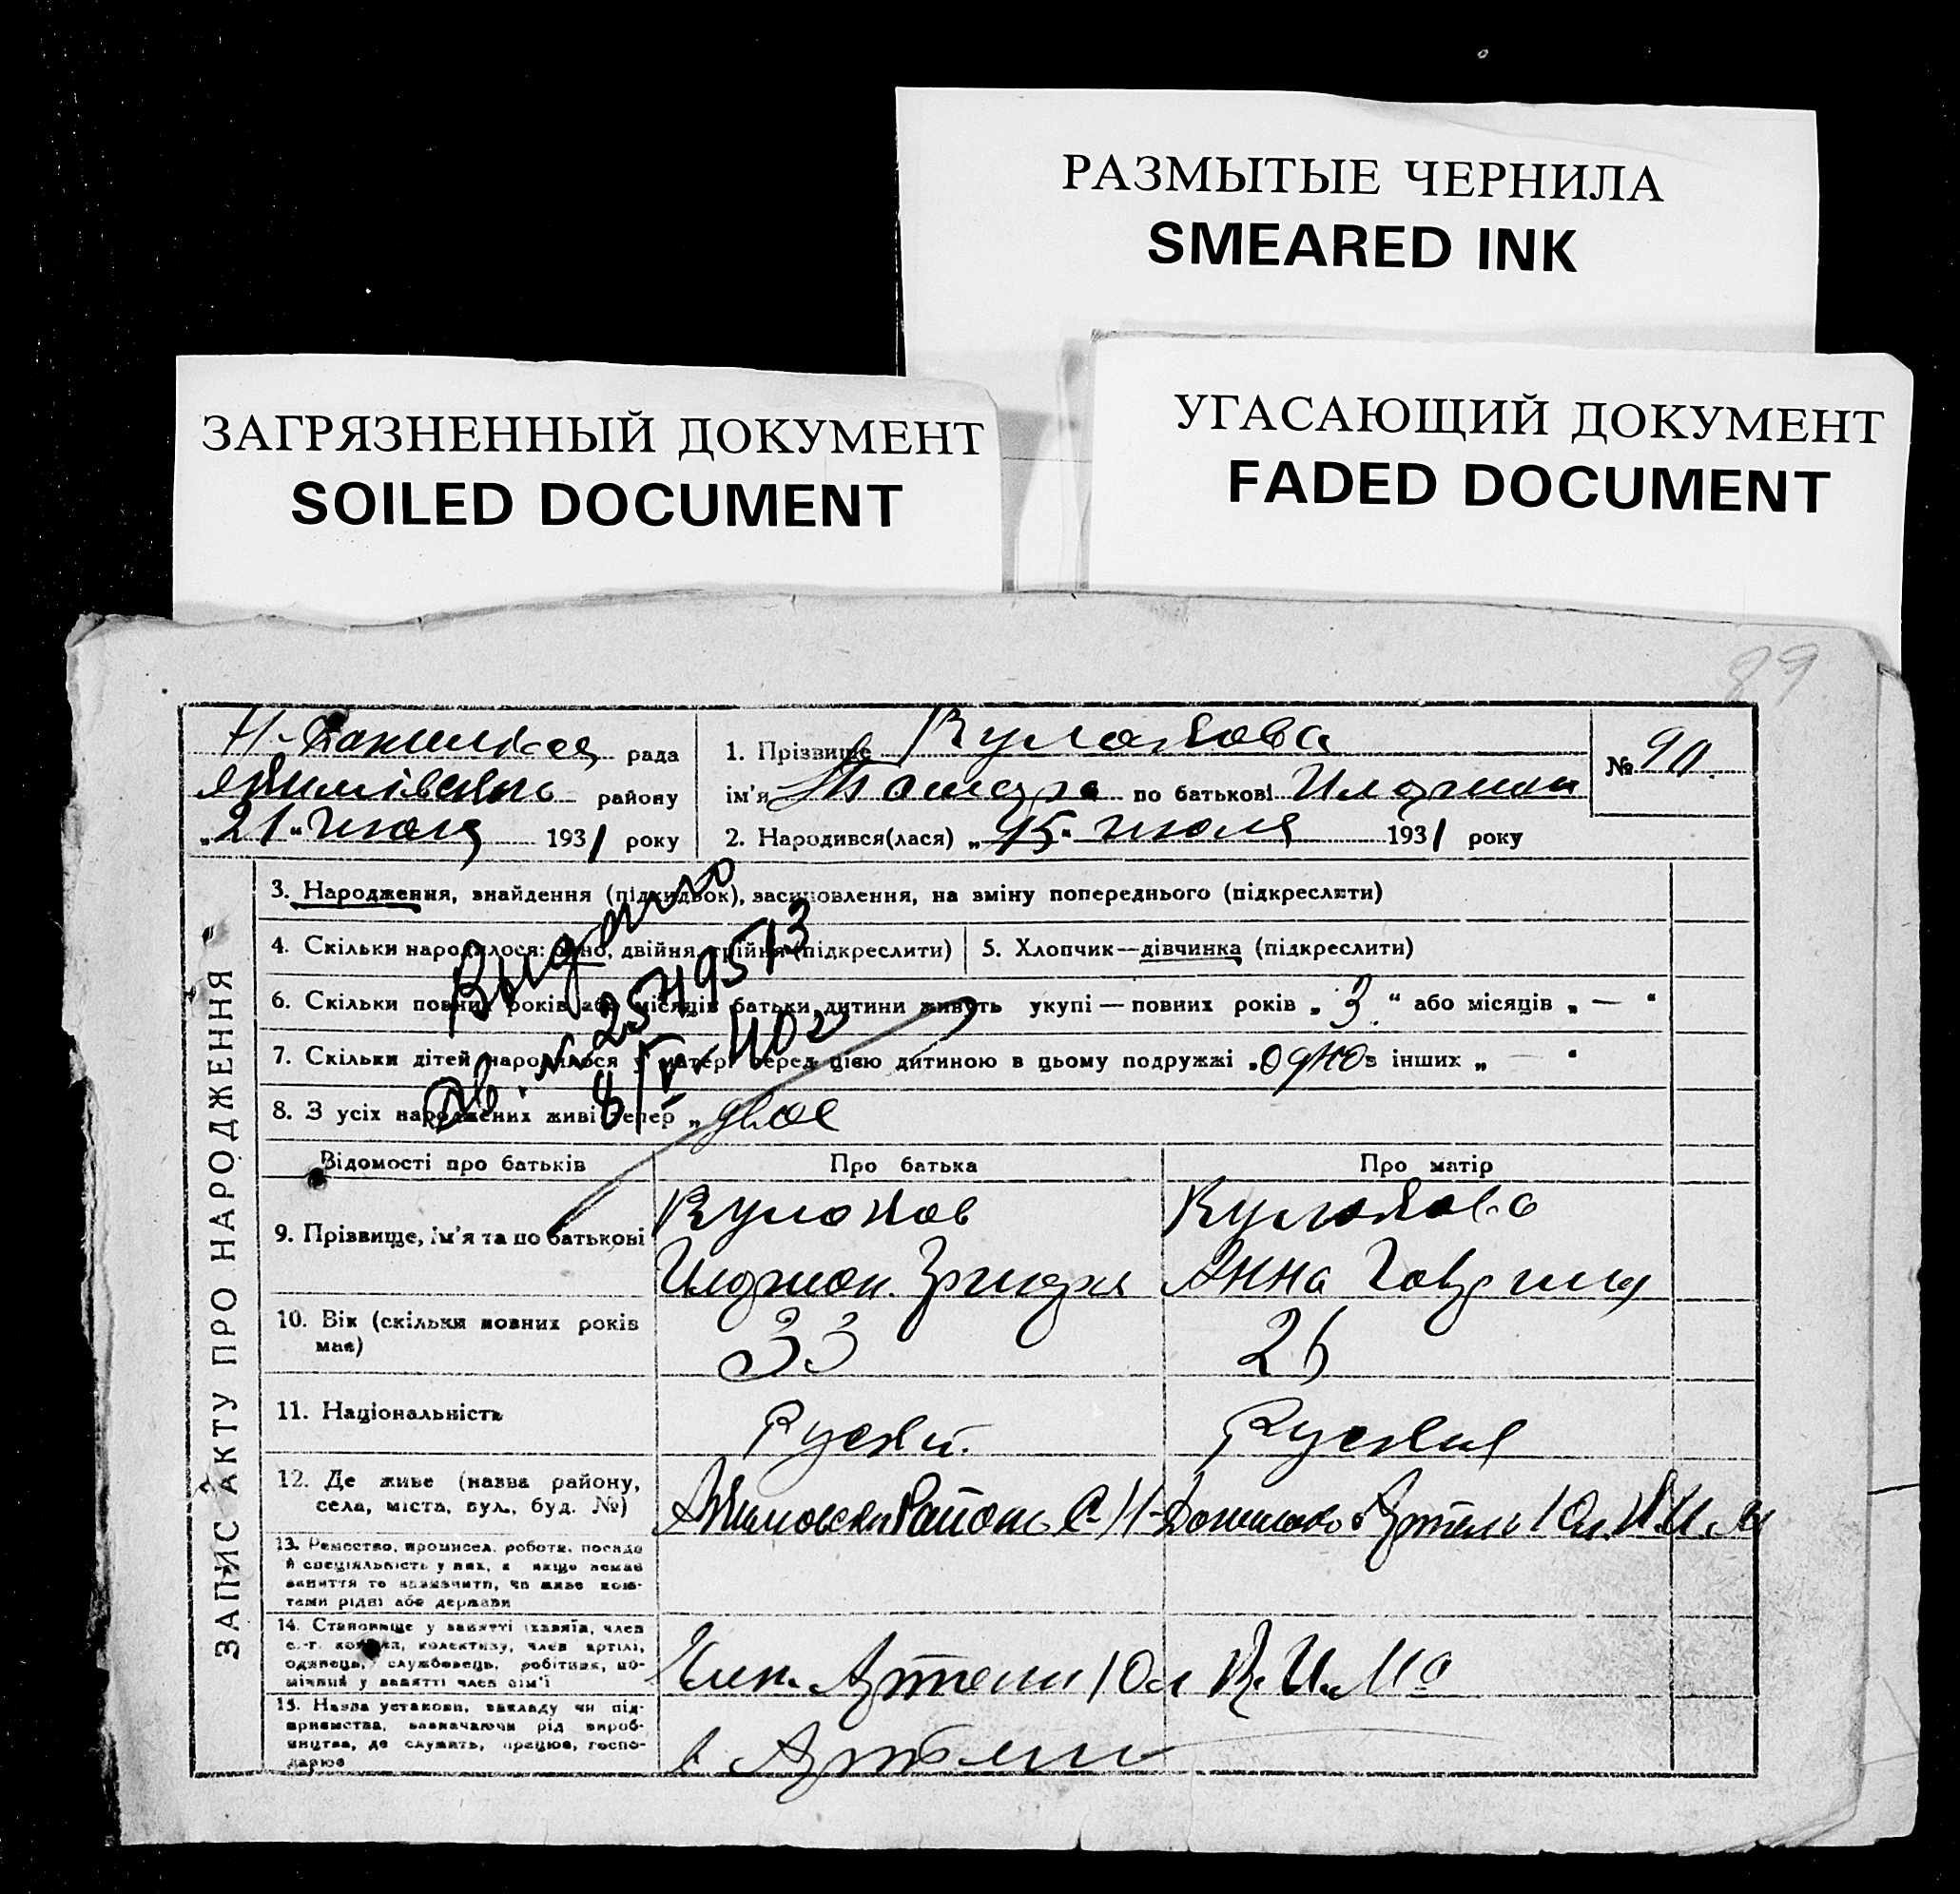 РАЗМЫТЫЕ ЧЕРНИЛА
SMEARED INK
ЗАГРЯЗНЕННЫЙ ДОКУМЕНТ
SOILED DOCUMENT
УГАСАЮЩИЙ ДОКУМЕНТ
FADED DOCUMENT
89
рада
району
„21“ июля 1931 року
1. Прізвище Кулакова
№ 90.
ім'я Тамара по батькові
2. Народився(лася) „15“ июля 1931 року
ЗАПИС АКТУ ПРО НАРОДЖЕННЯ
3. Народження, знайдення (підкидьок), засиновлення, на зміну попереднього (підкреслити)
4. Скільки народилося: одно, двійня, трійня (підкреслити)
5. Хлопчик—дівчинка (підкреслити)
6. Скільки повних років або місяців батьки дитини живуть укупі — повних років „3“ або місяців „—“
7. Скільки дітей народилося у матері перед цією дитиною в цьому подружжі „одно в інших „—“
8. З усіх народжених живі тепер „двое
Выдано
Св. №
8/V-40г
Відомості про батьків
Про батька
Про матір
9. Прізвище, ім'я та по батькові
Кулаков
Кулакова
Анна
10. Вік (скільки повних років має)
33
26
11. Національність
Руский.
Руская
12. Де живе (назва району, села, міста, вул., буд. №)
Акимовский Район С. Артель
13. Ремество, промисел, робота, посада й спеціяльність у них, а якщо немає заняття то зазначити, чи живе коштами рідні або держави
14. Становище у занятті (хазяїн, член с.-г. комуни, колективу, член артілі, одинець, службовець, робітник, помічний у занятті член сім'ї
Член. Артели
15. Назва установи, закладу чи підприємства, зазначаючи рід виробництва, де служить, працює, господарює
в Артели